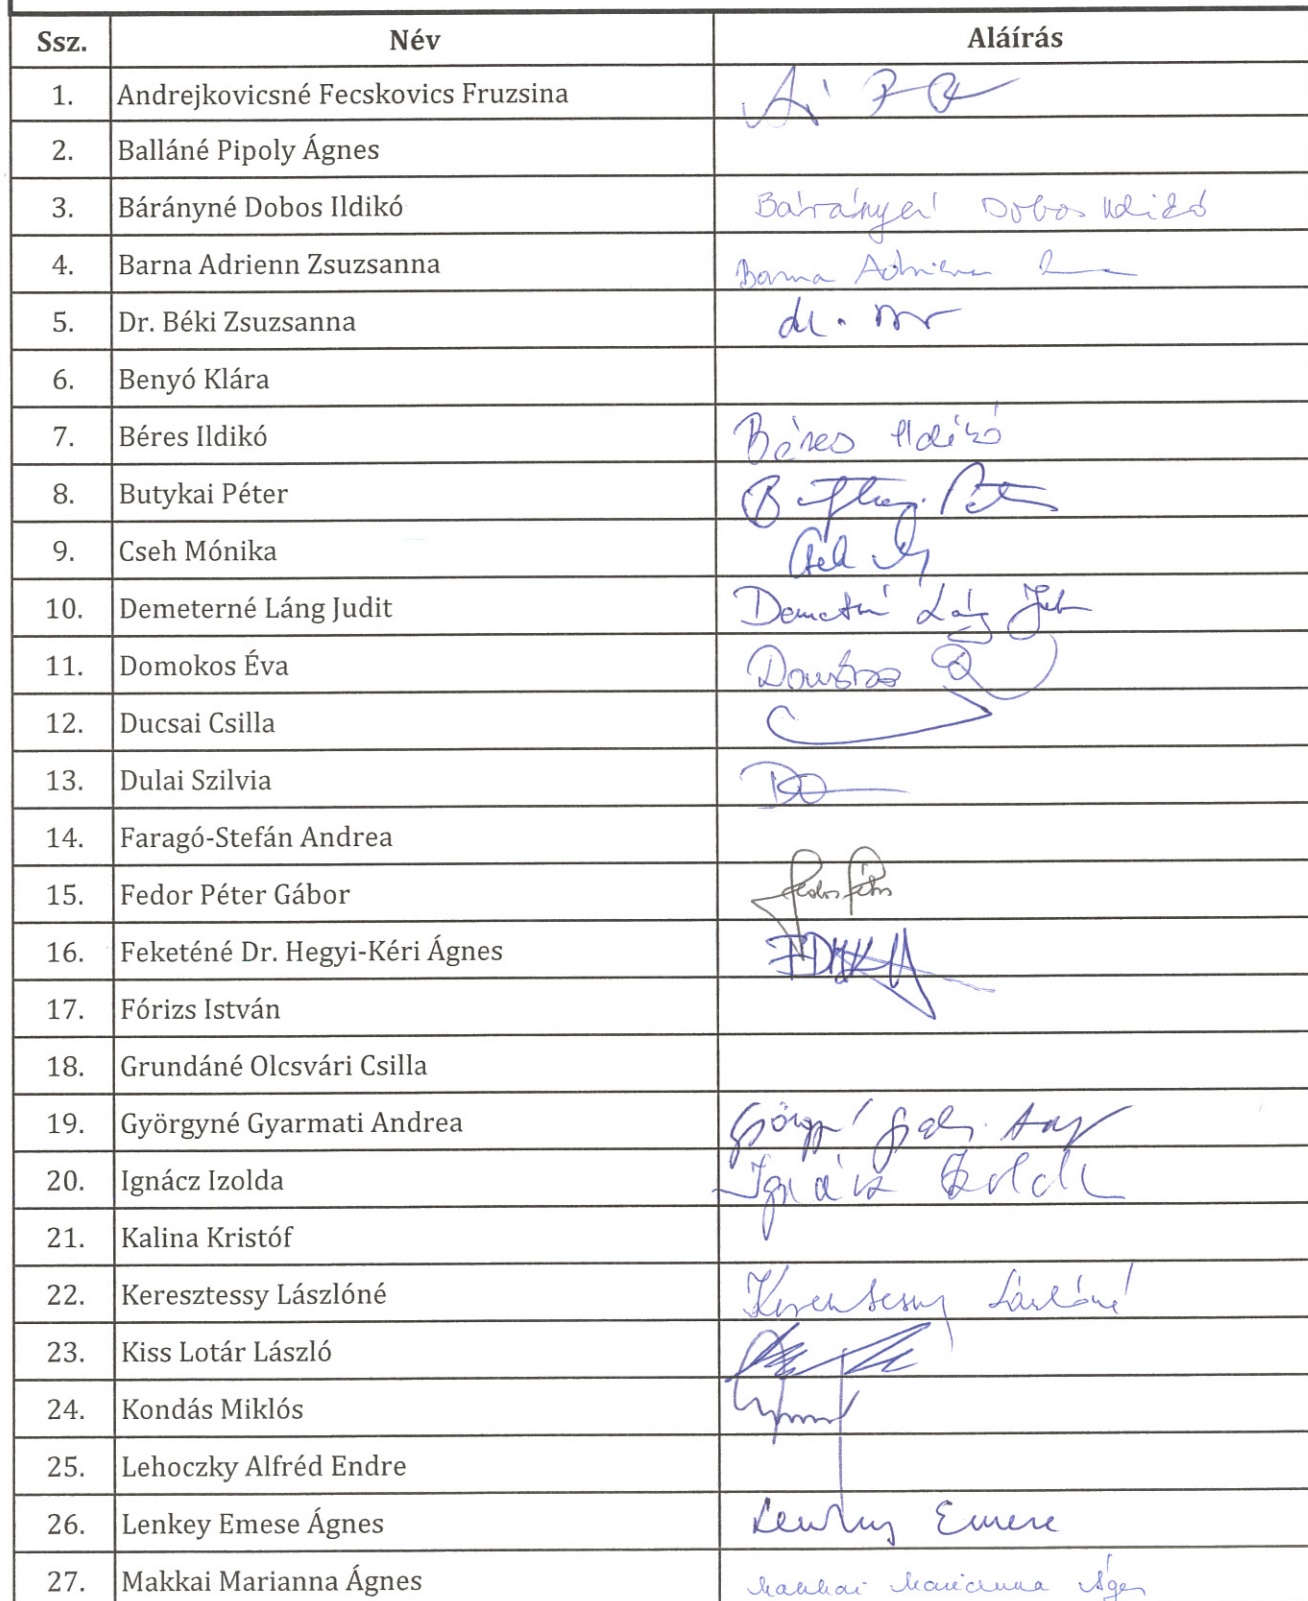 Ssz. Név Aláírás
1. Andrejkovicsné Fecskovics Fruzsina
2. Balláné Pipoly Ágnes
3. Bárányné Dobos Ildikó Bárányné Dobos Ildikó
4. Barna Adrienn Zsuzsanna Barna Adrienn
5. Dr. Béki Zsuzsanna dr.
6. Benyó Klára
7. Béres Ildikó Béres Ildikó
8. Butykai Péter
9. Cseh Mónika Cseh
10. Demeterné Láng Judit
11. Domokos Éva Domokos
12. Ducsai Csilla
13. Dulai Szilvia
14. Faragó-Stefán Andrea
15. Fedor Péter Gábor Fedor Péter
16. Feketéné Dr. Hegyi-Kéri Ágnes
17. Fórizs István
18. Grundáné Olcsvári Csilla
19. Györgyné Gyarmati Andrea
20. Ignácz Izolda Ignácz Izolda
21. Kalina Kristóf
22. Keresztessy Lászlóné Keresztessy Lászlóné
23. Kiss Lotár László
24. Kondás Miklós
25. Lehoczky Alfréd Endre
26. Lenkey Emese Ágnes Lenkey Emese
27. Makkai Marianna Ágnes Makkai Marianna Ágnes